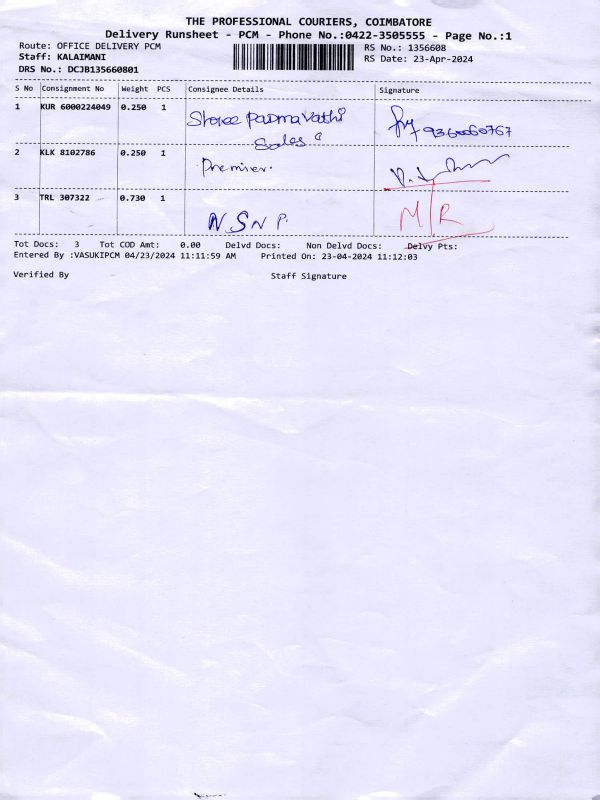 THE PROFESSIONAL COURIERS, COIMBATORE
Delivery Runsheet - PCM - Phone No.:0422-3505555 - Page No.:1
Route: OFFICE DELIVERY PCM
RS No.: 1356608
Staff: KALAIMANI
RS Date: 23-Apr-2024
DRS No.: DCJB135660801
S No Consignment No Weight PCS Consignee Details Signature
1 KUR 6000224049 0.250 1 Shree Padma Vathi 9360060767
Sales
2 KLK 8102786 0.250 1 Premier.
3 TRL 307322 0.730 1 N.S.N.P. M/R
Tot Docs: 3 Tot COD Amt: 0.00 Delvd Docs: Non Delvd Docs: Delvy Pts:
Entered By :VASUKIPCM 04/23/2024 11:11:59 AM Printed On: 23-04-2024 11:12:03
Verified By Staff Signature